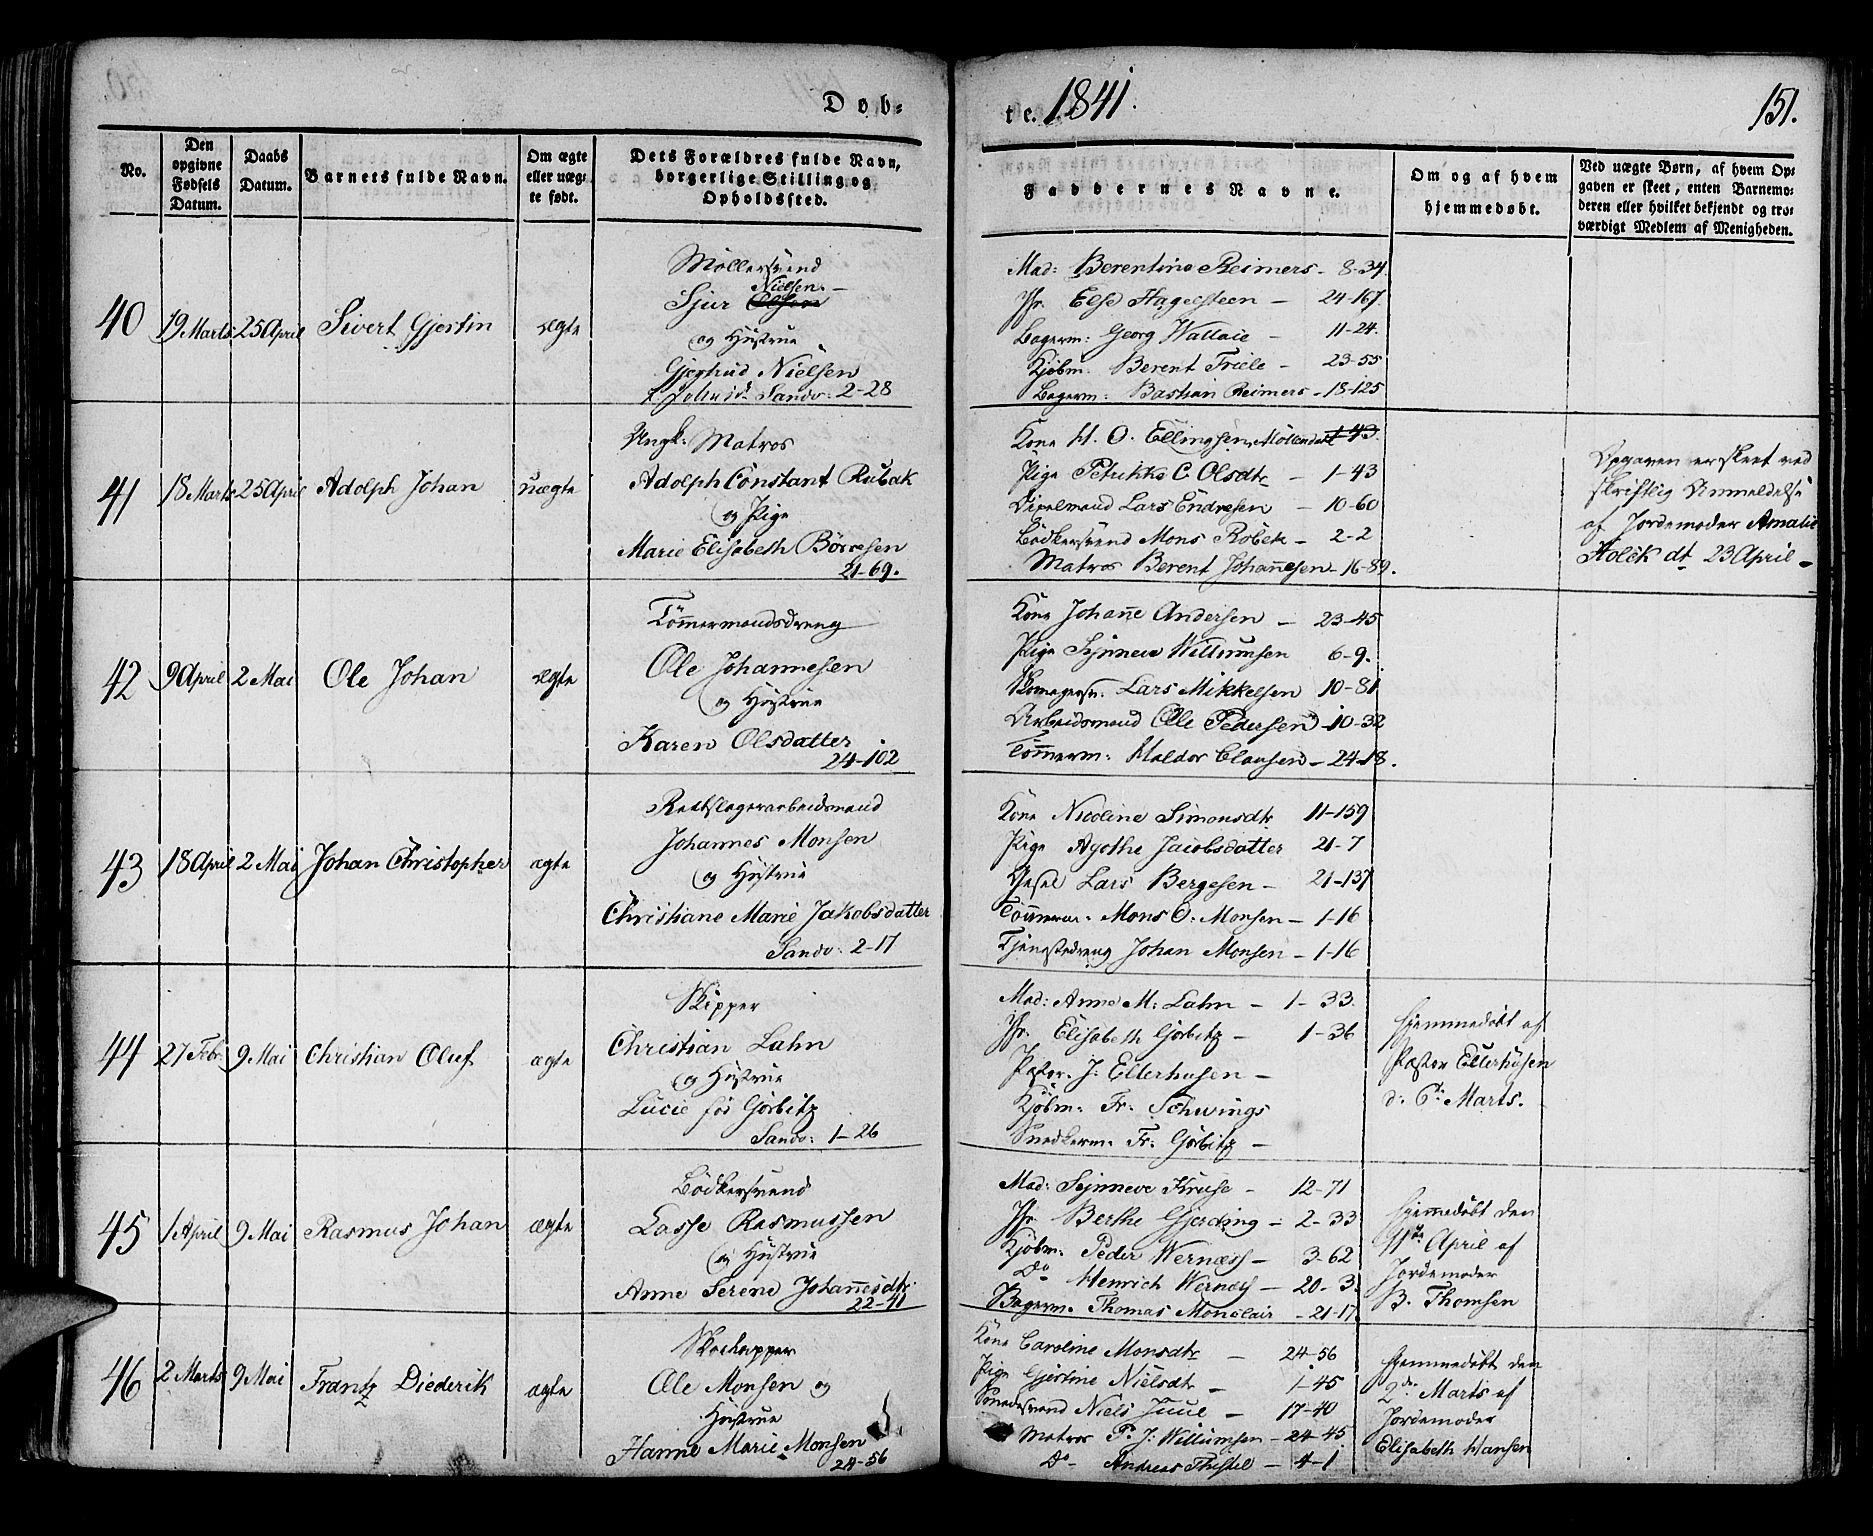 Døb=
te. 1841.
151.
No.
Den opgivne Fødsels Datum.
Daabs Datum.
Barnets fulde Navn.
Om ægte eller uæg- te født.
Dets Forældres fulde Navn, borgerlige Stilling og Opholdssted.
Faddernes Navne.
Om og af hvem hjemmedøbt.
Ved uægte Børn, af hvem Op- gaven er skeet, enten Barnemo- deren eller hvilket bekjendt og tro- værdigt Medlem af Menigheden.
40
19 Marts
25 April
Sivert Gjertin
ægte
Møllersvend
Nielsen.
Sjur Olsen
og Hustrue
Gjerthrud Nielsen
Sandv: 2-28
Mad: Berentine Reimers - 8-34.
Jfr. Else Hagelsteen - 24-167.
Bagerm: Georg Wallace - 11-24.
Kjøbm. Berent Friele - 23-55
Bagerm: Bastian Reimers - 18-125
41
18 Marts
25 April
Adolph Johan
uægte
Ungk: Matros
Adolph Constant Rubak
og Pige
Marie Elisabeth Börresen
21-69.
Kone H. O. Ellingsen, Möllendal 1-43.
Pige Petrikke C. Olsdtr - 1-43
Lars Endresen - 10-60
Bödkersvend Mons Robek - 2-2
Matros Berent Johannesen - 16-89.
Opgaven er skeet ved
skriftlig Anmeldelse
af Jordemoder Amalie
Holck dt 23 April -
42
9 April
2 Mai
Ole Johan
ægte
Tömmermandsdreng
Ole Johannesen
og Hustrue
Karen Olsdatter
24-102
Kone Johane Andersen - 23-45
Pige Synneve Willumsen 6-9.
Skomagersv. Lars Mikkelsen 10-81
Arbeidsmand Ole Pedersen - 10-32
Tömmerm: Haldor Clausen - 24-18.
43
18 April
2 Mai
Johan Christopher
ægte
Reebslagerarbeidsmand
Johannes Monsen
og Hustrue
Christiane Marie Jakobsdatter
Sandv: 2-17
Kone Nicoline Simonsdtr 11-159
Pige Agathe Jacobsdatter 21-7
Lars Bergesen - 21-137
Tömmerm. Mons O. Monsen - 1-16
Tjenestedreng Johan Monsen - 1-16
44
27 Febr.
9 Mai
Christian Oluf
ægte
Skipper
Christian Lahn
og Hustrue
Lucie fød Görbitz
Sandv: 1-26
Mad: Anne M: Lahn - 1-33.
Jfr. Elisabeth Görbitz - 1-36
Pastor. J. Ellerhusen -
Kjöbm. Fr. Schwings
Snedkerm. Fr: Görbitz -
Hjemmedöbt af
Pastor Ellerhusen
d: 6te Marts.
45
1 April
9 Mai
Rasmus Johan
ægte
Bödkersvend
Lasse Rasmussen
og Hustrue
Anne Serene Johannesdtr.
22-41
Mad: Synneve Kruse - 12-71
Jfr. Berthe Gjerding - 2-33
Kjöbm. Peder Wernøss - 3-62
Do Henrich Wernøss - 20-3.
Bagerm. Thomas Monclair - 21-17.
Hjemmedöbt den
11te April af
Jordemoder
B. Thomsen
46
2 Marts
9 Mai
Frantz Diederik
ægte
Ole Monsen og
Hustrue
Hanne Marie Monsen
24-56
Kone Caroline Monsdtr - 24-56
Pige Gjertine Nielsdtr - 1-45
Niels Juul - 17-40
Matros P. J. Willumsen - 24-45
Do - Andreas Thistel - 4-1
Hjemmedöbt den
2den Marts af
Jordemoder
Elisabeth Hansen